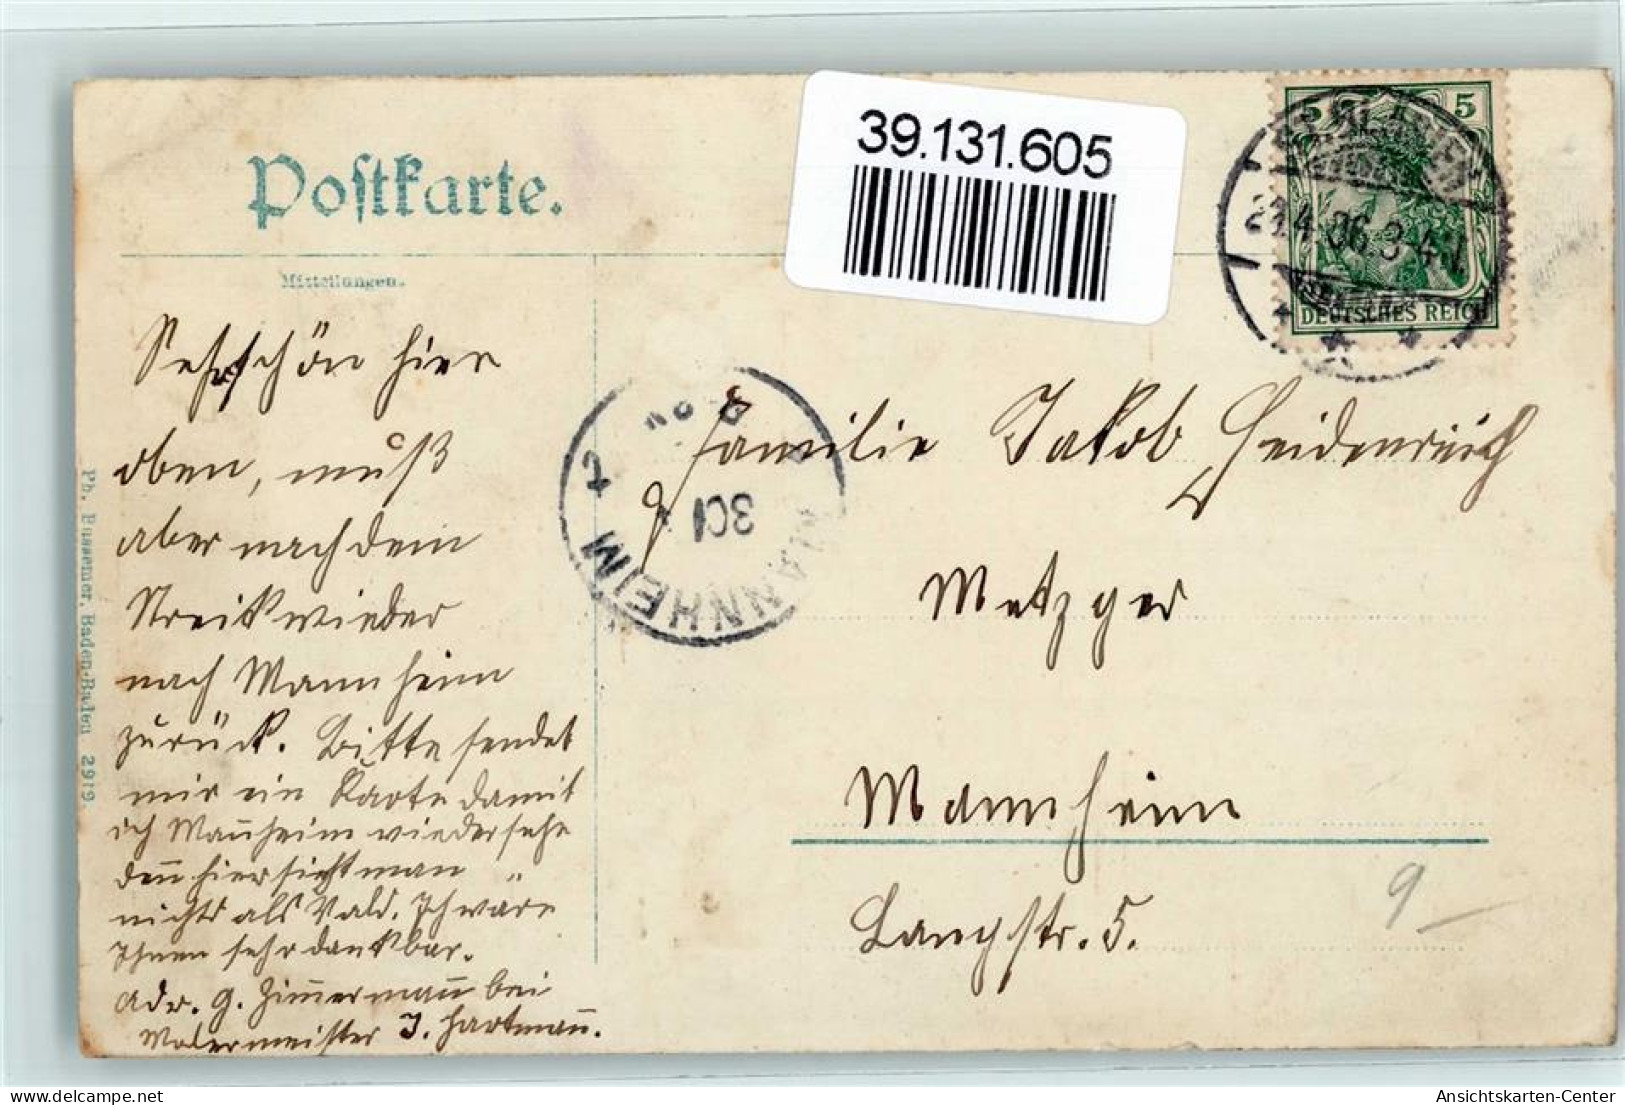 Postkarte.
39.131.605
5 5
DEUTSCHES REICH
4.06.3-4
Mitteilungen.
MANNHEIM 2
30
Sehr schön hier
oben, muß
aber nach dem
Streik wieder
nach Mannheim
zurück. Bitte sendet
mir ein Karte damit
ich Mañheim wiedersehe
deñ hier sieht man
nichts als Wald. Ich wäre
Ihnen sehr dankbar.
Adr. G. Zim̄ermañ bei
Malermeister J. Hartmañ.
Familie Jakob Heidenreich
Metzger
Mannheim
Langstr. 5.
9
Ph. Bussemer, Baden-Baden 2919
delcampe.net
Ansichtskarten-Center